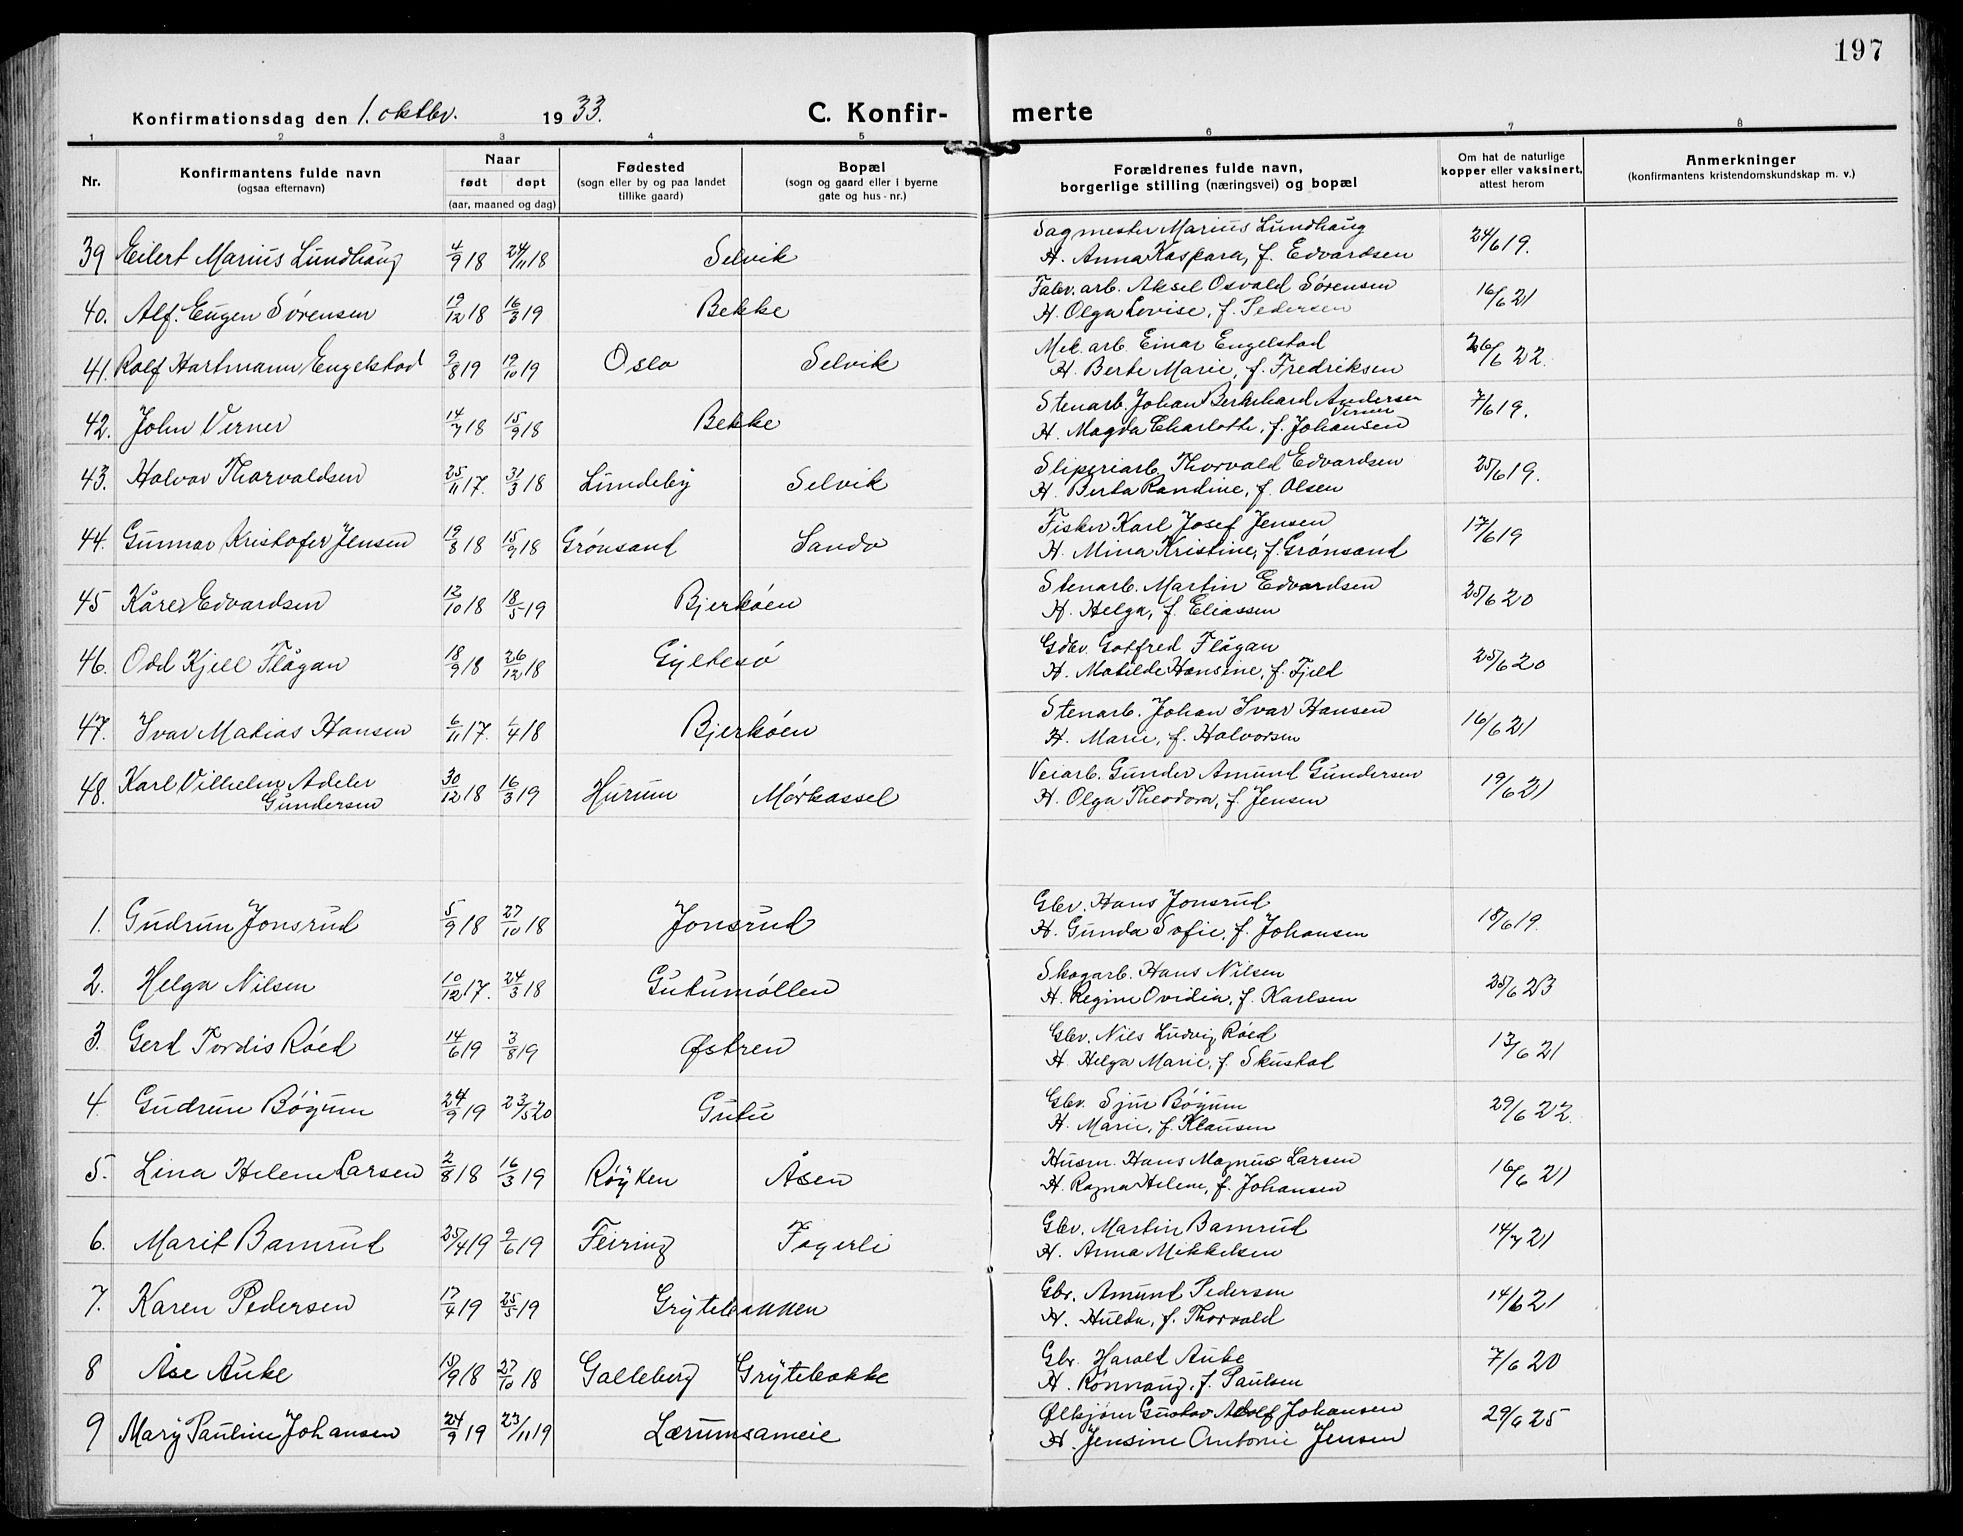 197
Konfirmationsdag den 1. oktbr. 1933. C. Konfirmerte
1 2 3 4 5 6 7 8
Nr. Konfirmantens fulde navn (ogsaa efternavn) Naar født døpt (aar, maaned og dag) Fødested (sogn eller by og paa landet tillike gaard) Bopæl (sogn og gaard eller i byerne gate og hus-nr.) Forældrenes fulde navn, borgerlige stilling (næringsvei) og bopæl Om hat de naturlige kopper eller vaksinert, attest herom Anmerkninger (konfirmantens kristendomskundskap m. v.)
39 Eilert Marius Lundhaug 4/9 18 24/11 18 Selvik Sagmester Marius Lundhaug 24/6 19.
H. Anna Kaspara, f. Edvardsen
40. Alf. Eugen Sørensen 19/12 18 16/3 19 Bekke Fabr. arb. Aksel Osvald Sørensen 16/6 21
H. Olga Lovise, f. Pedersen
41. Rolf Hartmann Engelstad 9/8 19 19/10 19 Oslo Selvik Mek. arb. Einar Engelstad 26/6 22.
H. Berte Marie, f. Fredriksen
42. John Verner 14/7 18 15/9 18 Bekke Stenarb. Johan Bernhard Andersen Verner 7/6 19.
H. Magda Charlotte, f. Johansen
43. Halvor Thorvaldsen 25/11 17. 31/3 18 Lundeby Selvik Sliperiarb. Thorvald Edvardsen 25/6 19.
H. Berta Randine, f. Olsen
44. Gunnar Kristofer Jensen 19/8 18 15/9 18 Grønsand Sando Fisker Karl Josef Jensen 17/6 19
H. Mina Kristine, f. Grønsand
45 Kåre Edvardsen 12/10 18 18/5 19 Bjerkøen Stenarb. Martin Edvardsen 25/6 20
H. Helga, f. Eliassen
46. Odd Kjell Flågan 18/9 18 26/12 18 Gyltesø Gdbr. Gotfred Flågan 25/6 20
H. Matilde Hansine, f. Fjeld
47. Ivar Matias Hansen 6/11 17. 1/4 18 Bjerkøen Stenarb. Johan Ivar Hansen 16/6 21
H. Marie, f. Halvorsen
48. Karl Vilhelm Adeler Gundersen 30/12 18 16/3 19 Hurum Mørkassel Veiarb. Gunder Amund Gundersen 19/6 21
H. Olga Theodora, f. Jensen
1. Gudrun Jonsrud 5/9 18 27/10 18 Jonsrud Gbr. Hans Jonsrud 18/6 19.
H. Gunda Sofie, f. Johansen
2. Helga Nilsen 10/12 17. 24/3 18 Gutumøllen Skogarb. Hans Nilsen 25/6 23
H. Regine Ovidia, f. Karlsen
3. Gerd Tordis Røed 14/6 19 3/8 19 Østren Gbr. Nils Ludvig Røed 13/6 21
H. Helga Marie, f. Skustad
4. Gudrun Bøgum 24/9 19 23/5 20 Gutu Gbr. Sjur Bøgum 29/6 22.
H. Marie, f. Klausen
5. Lina Helene Larsen 2/8 18 16/3 19 Røyken Åsen Husm. Hans Magnus Larsen 16/6 21
H. Ragna Helene, f. Johansen
6. Marit Bamrud 25/4 19 9/6 19 Feiring Fagerli Gbr. Martin Bamrud 14/7 21
H. Anna Mikkelsen
7. Karen Pedersen 17/4 19 25/5 19 Grytebakken Gbr. Amund Pedersen 14/6 21
H. Hulda, f. Thorvald
8 Åse Auke 15/9 18 27/10 18 Galleberg Grytebakke Gbr. Harald Auke 7/6 20
H. Rønnaug, f. Paulsen
9 Mary Pauline Johansen 24/9 19 23/11 19 Lærumsameie Ølkjører Gustav Adolf Johansen 29/6 25
H. Jensine Antonie Jensen